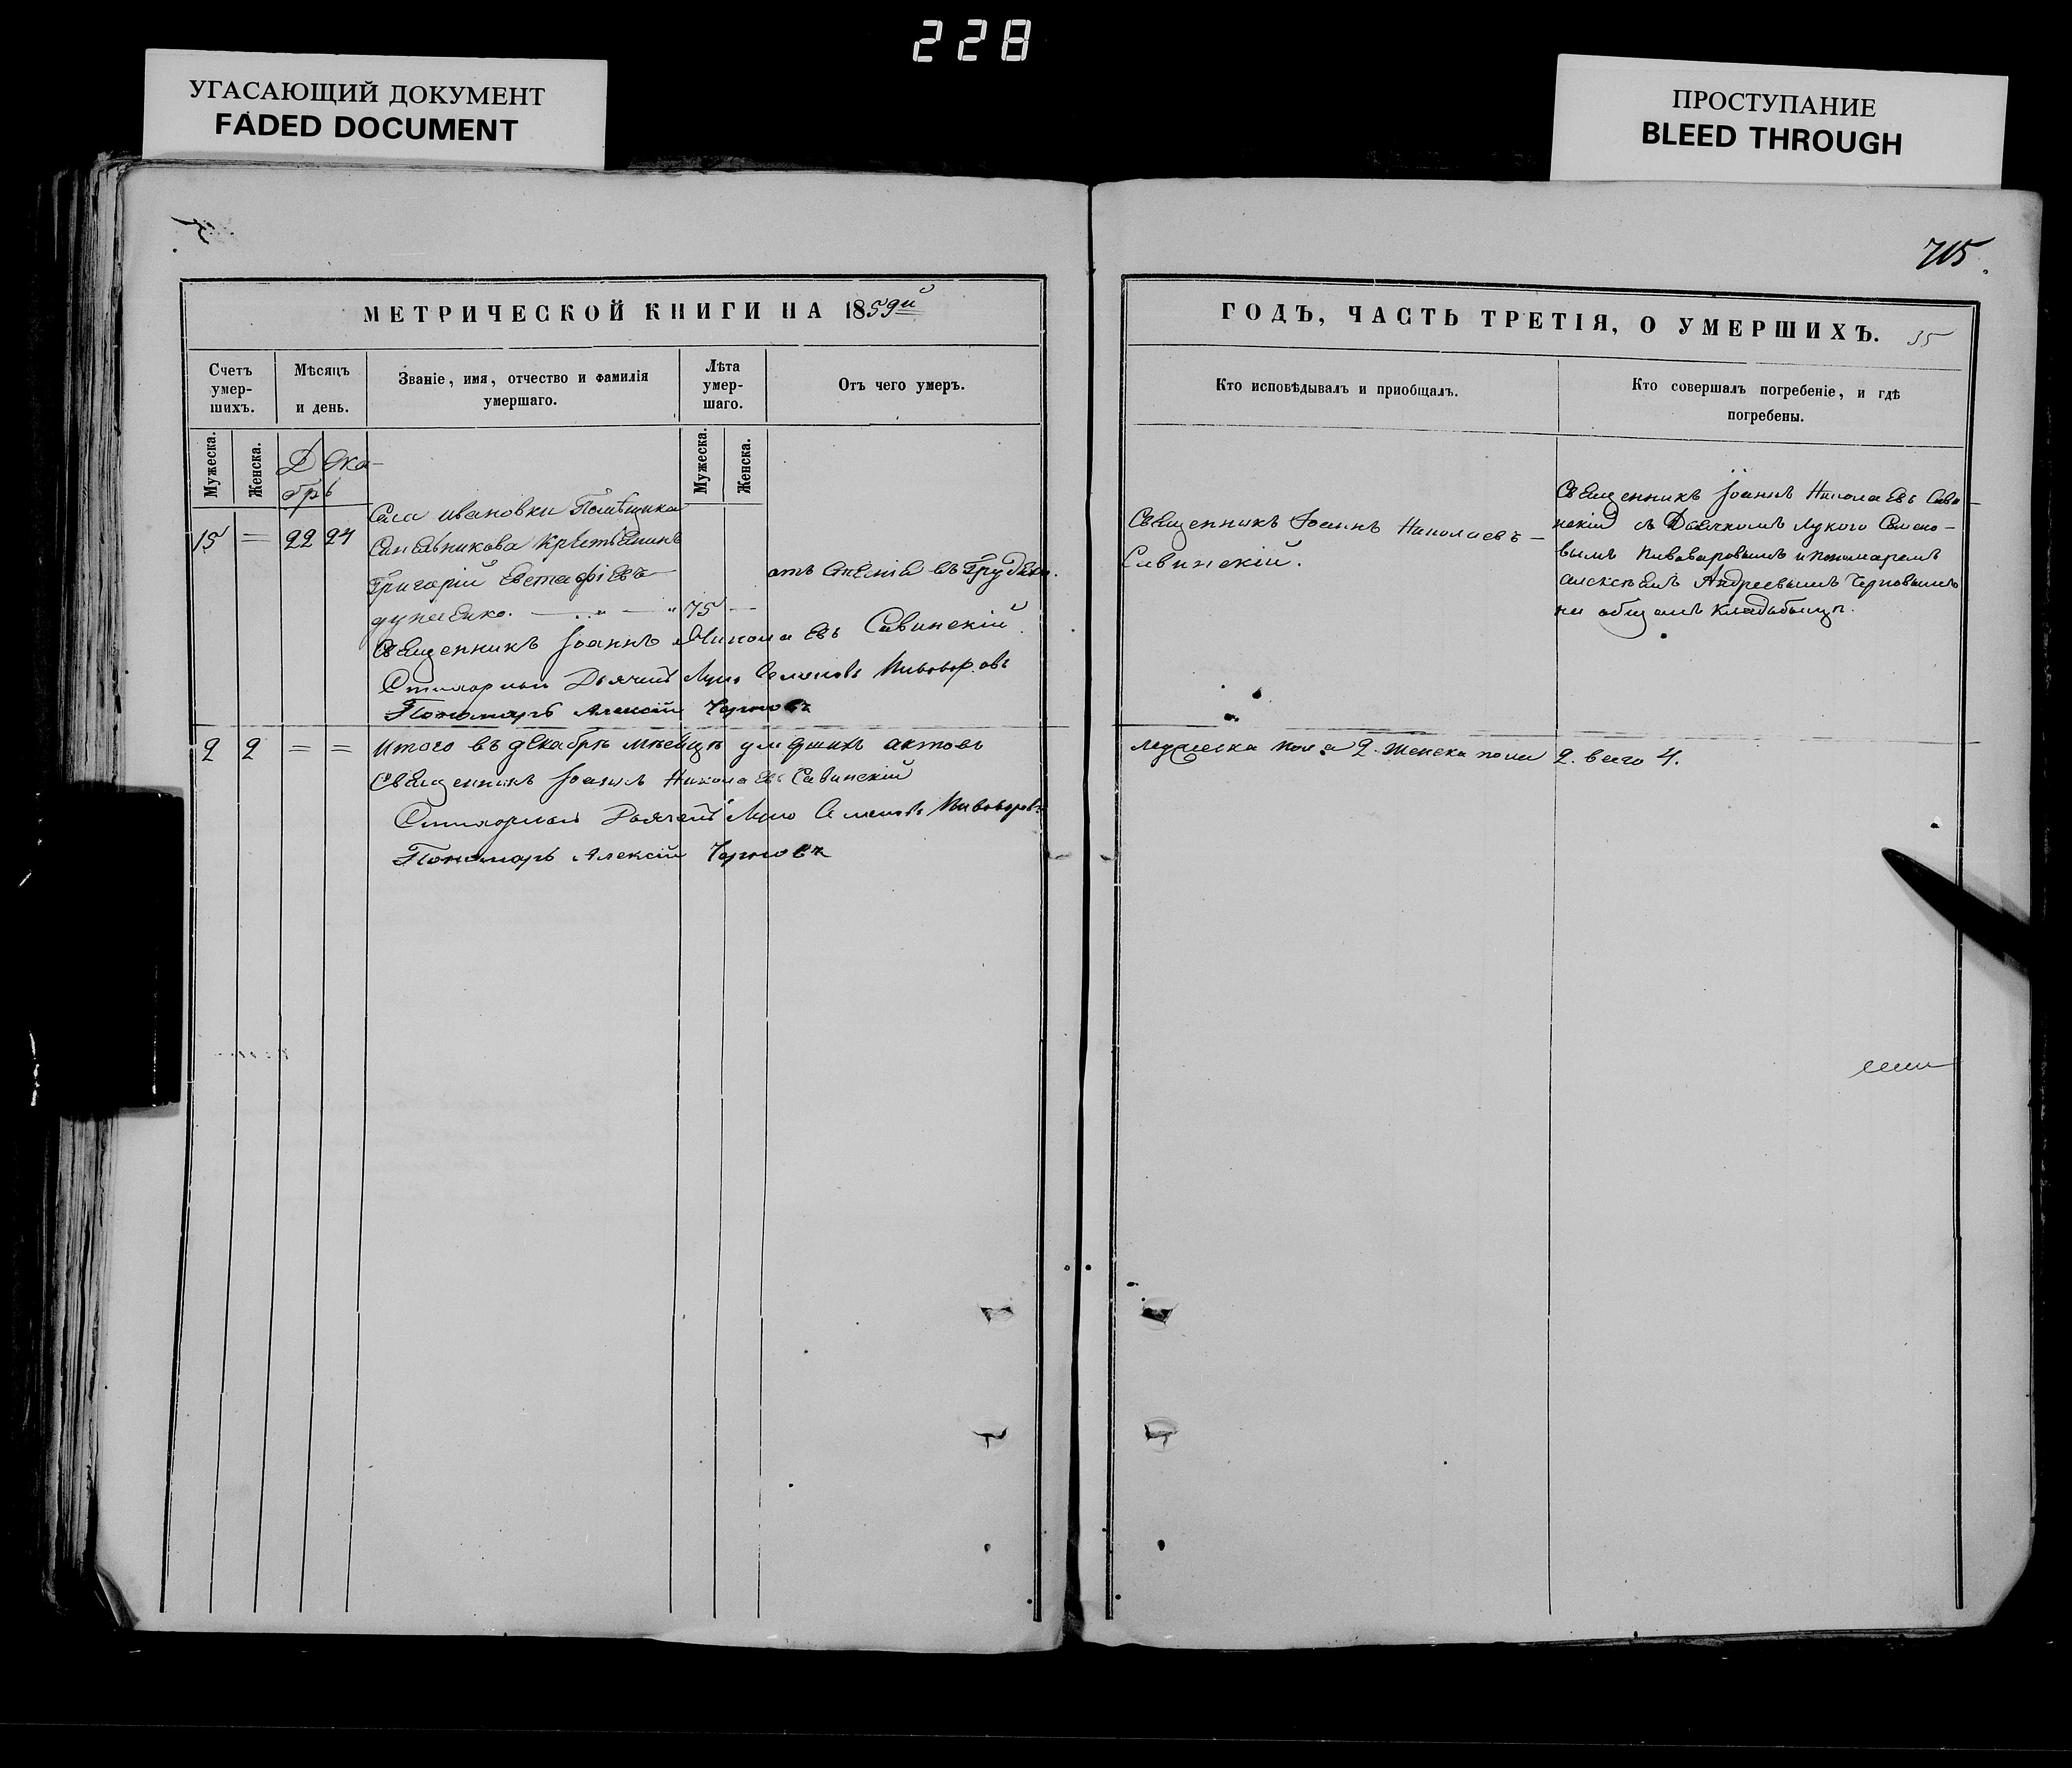 228
УГАСАЮЩИЙ ДОКУМЕНТ
FADED DOCUMENT
ПРОСТУПАНИЕ
BLEED THROUGH
715.
МЕТРИЧЕСКОЙ КНИГИ НА 1859й
Счетъ умер-шихъ.
Мѣсяцъ и день.
Званіе, имя, отчество и фамилія умершаго.
Лѣта умер-шаго.
Отъ чего умеръ.
Мужеска.
Женска.
Дека-
брь
Мужеска.
Женска.
15 = 22 24
Села ивановки Помѣщика
Синельникова Крестьянинъ
Григорій Евстафіевъ
75
отъ стесніе въ Грудехъ.
Священникъ Іоаннъ Николаевъ Савинскій
Стихарный Дьячекъ Лука Семеновъ Пивоваровъ
Пономарь Алексій Черновъ
2 2 = =
Итого въ декабрѣ мѣсяцѣ умершихъ актовъ
Священникъ Іоаннъ Николаевъ Савинскій
Стихарный Дьячекъ Лука Семеновъ Пивоваровъ
Пономарь Алексій Черновъ
ГОДЪ, ЧАСТЬ ТРЕТІЯ, О УМЕРШИХЪ.
35
Кто исповѣдывалъ и приобщалъ.
Кто совершалъ погребеніе, и гдѣ погребены.
Священникъ Іоаннъ Николаевъ
Савинскій.
Священникъ Іоаннъ Николаевъ Сави-
нскій съ Дьячкомъ Лукою Семено-
вымъ Пивоваровымъ и пономаремъ
алексѣемъ Андреевымъ Черновымъ
на общемъ кладбищѣ.
мужеска пола 2. женска пола 2. всего 4.